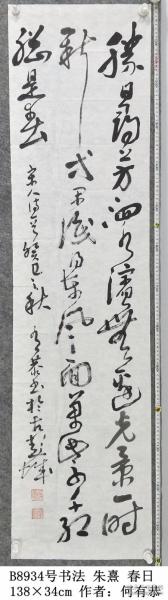 勝日尋芳泗水濱無邊光景一時
新等閒識得東風面萬紫千紅
總是春
宋人詩意癸巳之秋有恭書於古彭城
B8934号书法 朱熹 春日
138×34cm 作者：何有恭